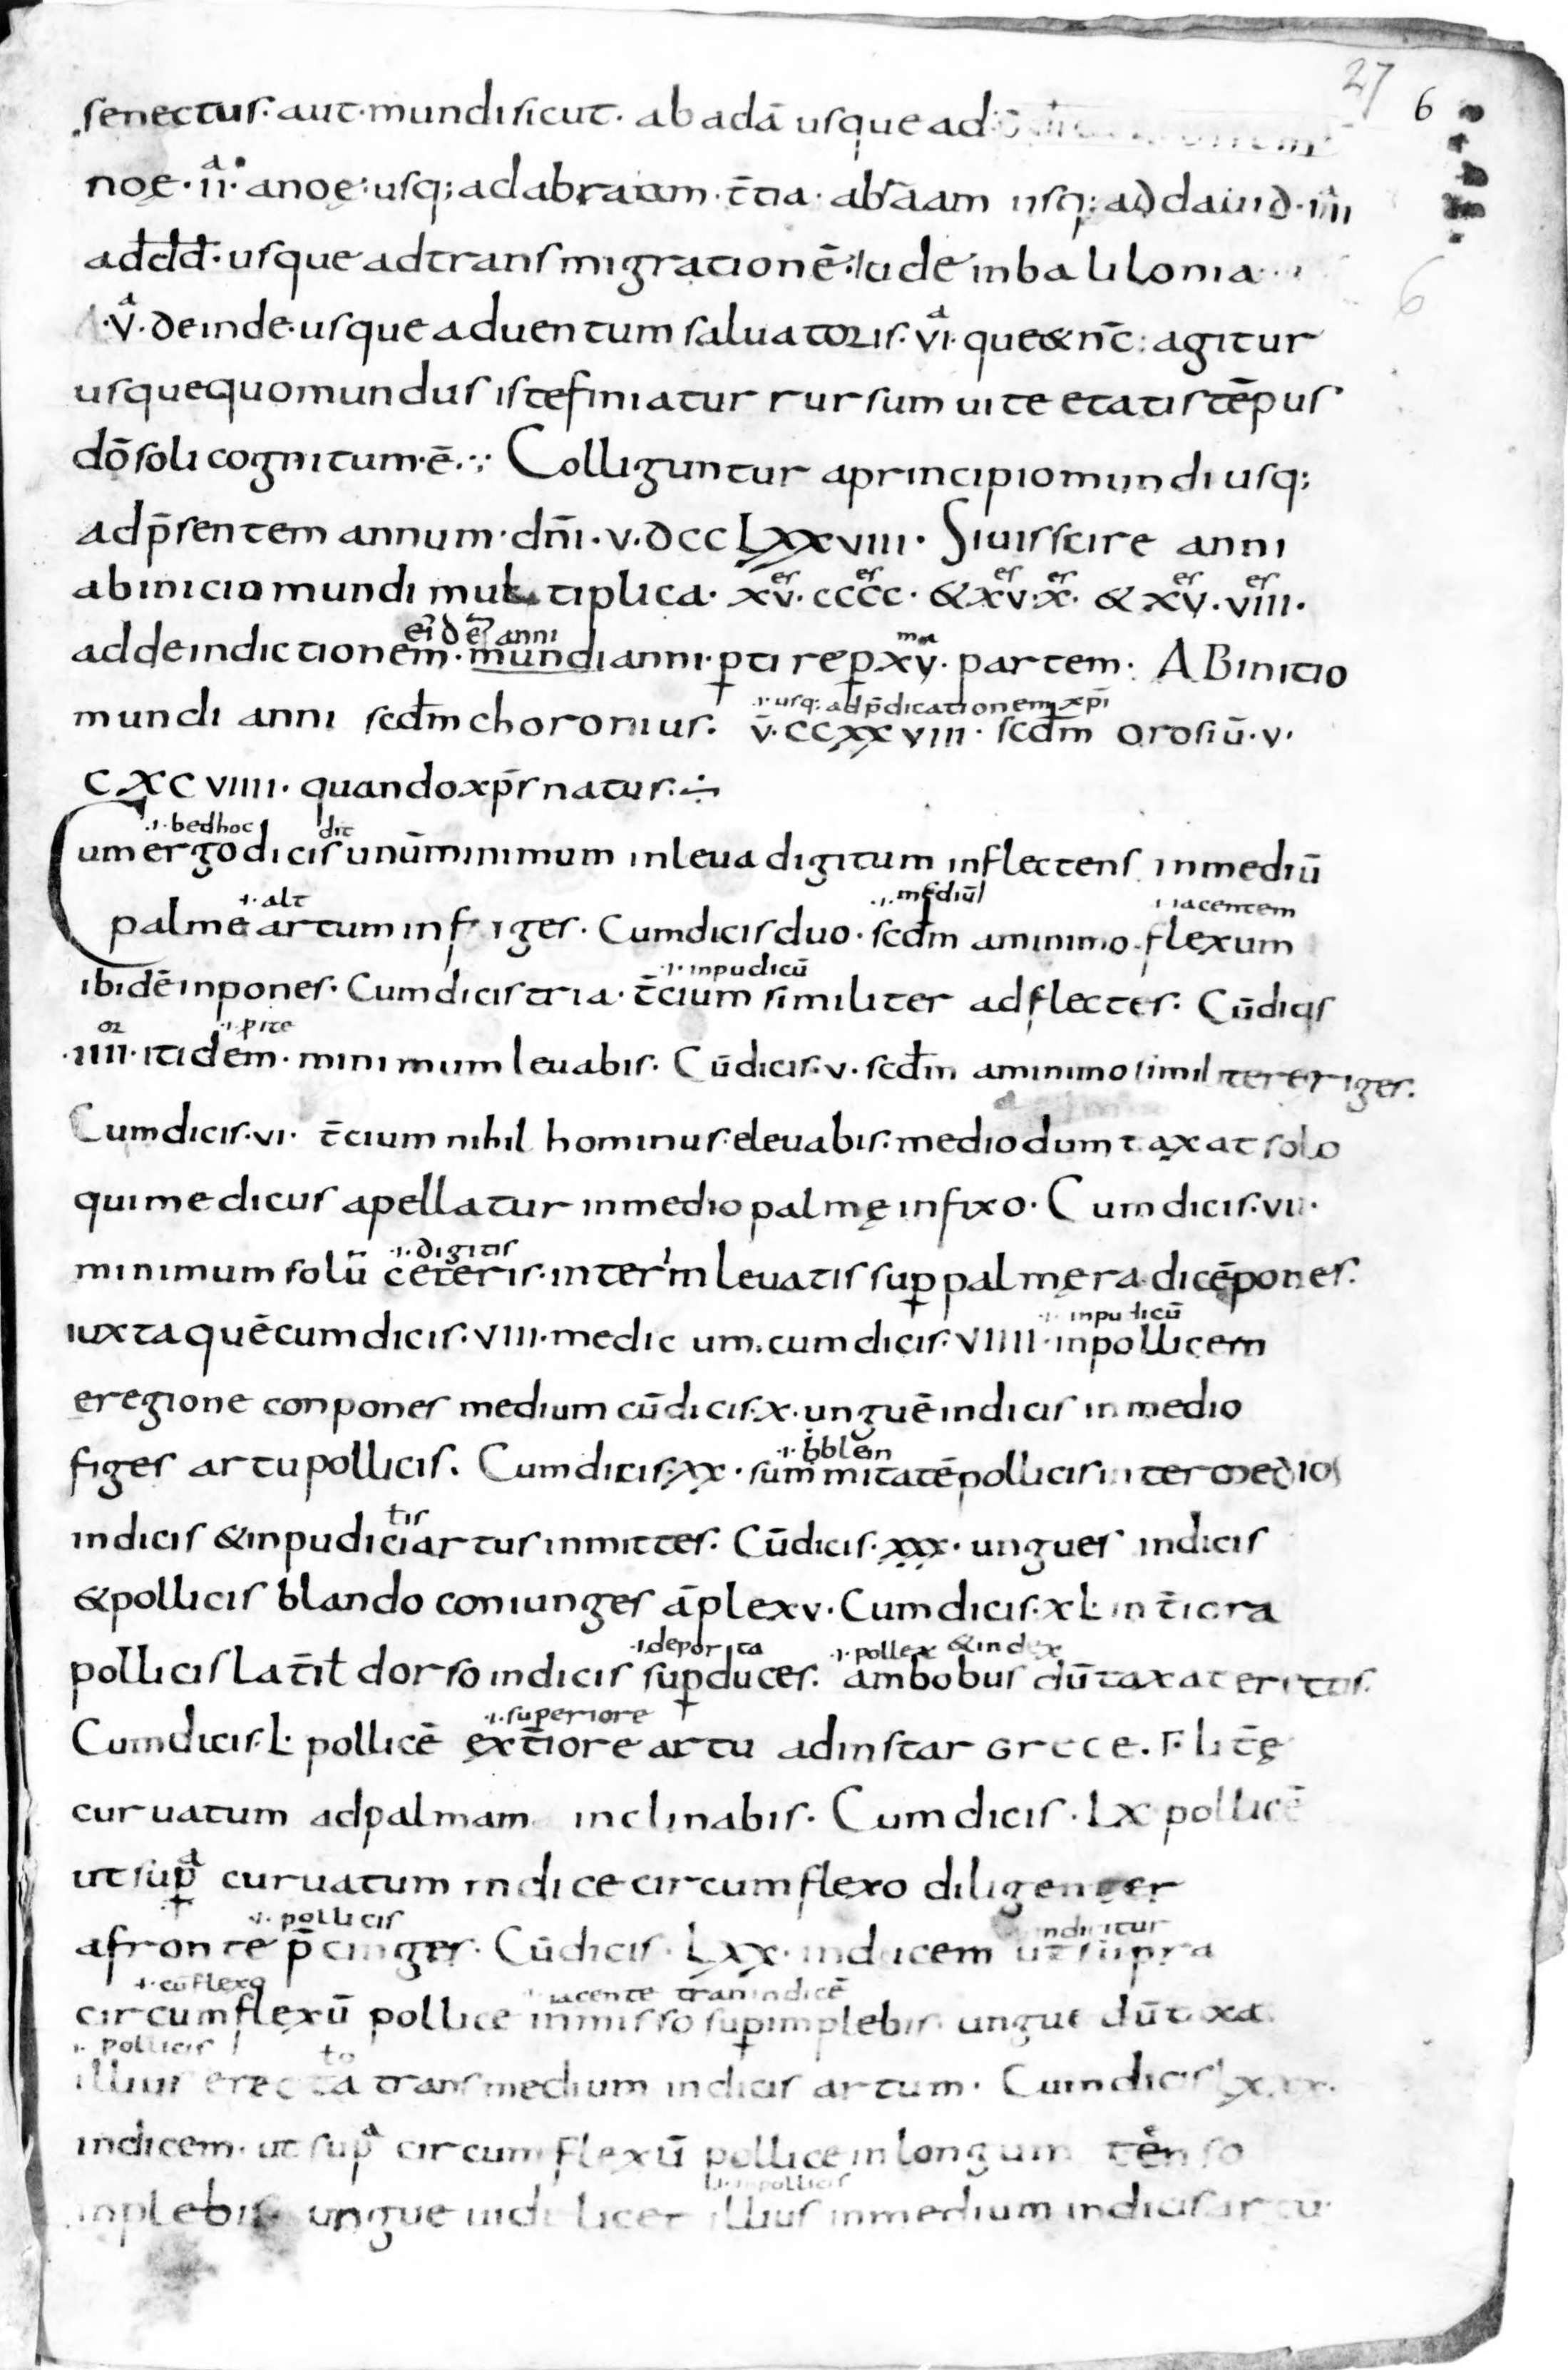 27 6
senectus· aut·mundi sicut· ab adā usque ad
noę·ii^a· a noę·usq; ad abraam·t̄tia· abraam usq; ad dauid·iiii^a
ad dd̄·usque ad transmigrationē·iude in babilonia·
6
·v^a·deinde·usque aduentum saluatoris·vi^a·que & nc̄: agitur
usquequo mundus iste finiatur rursum uite etatis tēpus
dō soli cognitum·ē·:· Colliguntur a principio mundi usq;
ad p̄sentem annum·dn̄i·v·dcclxxviii· Si uis scire anni
ab inicio mundi multiplica· xv^es·cccc^es· & xv^es·x^es· & xv^es·viii^es·
ei᷒dē anni
adde indictionem·mundi anni·ꝑtire ꝑ xv^ma·partem· AB initio
·i·usq; ad p̄dicationem xp̄i
mundi anni scd̄m choronius· v̄·ccxxviii· scd̄m orosiū·v·
cxcviiii· quando xp̄s natus·÷
·i·bed hoc dic̄
Cum ergo dicis unū minimum in leua digitum inflectens in mediū
·i·alt̄ ·i·mediū iacentem
palme artum infiges· Cum dicis duo·scd̄m a minimo flexum
·i·inpudicū
ibidē inpones· Cum dicis tria·t̄cium similiter adflectes· Cū dicis
or ·i·ꝑite
·iiii·itidem·minimum leuabis· Cū dicis·v·scd̄m a minimo similiter eriges·
Cum dicis·vi· t̄cium nihil hominus·eleuabis·medio dumtaxat solo
qui medicus apellatur in medio palmę infixo· Cum dicis·vii·
·i·digitis
minimum solū ceteris·interim leuatis suꝑ palmę radicē pones·
·i·inpudicū
iuxta quē cum dicis·viii·medicum·cum dicis·viiii·inpollicem
e regione conpones medium cū dicis·x·unguē indicis in medio
figes artu pollicis· Cum dicis·xx·summitatē pollicis inter medios
tis
indicis & inpudici artus inmittes· Cū dicis·xxx·ungues indicis
& pollicis blando coniunges āplexv· Cum dicis·xl·int̄iora
·i·deporta ·i·pollex & index
pollicis lat̄ł dorso indicis suꝑduces· ambobus dūtaxat erectis·
·i·superiore
Cum dicis·l·pollicē ext̄iore artu ad instar grece·Γ lit̄ę
curuatum ad palmam inclinabis· Cum dicis·lx pollicē
ut suꝑ^a curuatum indice circumflexo diligenter
·i·pollicis
a fronte p̄cinges· Cū dicis·lxx·indicem ut supra
·i·cū flexo iacente tran indicē
circumflexū pollice inmisso suꝑimplebis ungue dūtaxa
·i·pollicis to
illius erecta trans medium indicis artum· Cum dicis lxxx·
indicem·ut suꝑ^a circumflexū pollice in longum tenso
pollicis
inplebis ungue uidelicet illius in medium indicis artu·